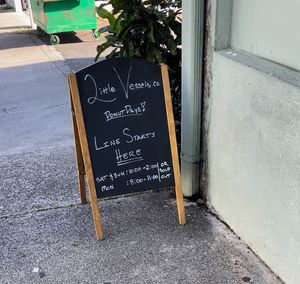 2ittle Vessels Co
Donut Days!
Line Starts
Here
Sat & Sun: 10:00-2:00/ or
sold
Mon : 8:00-11:00/ out